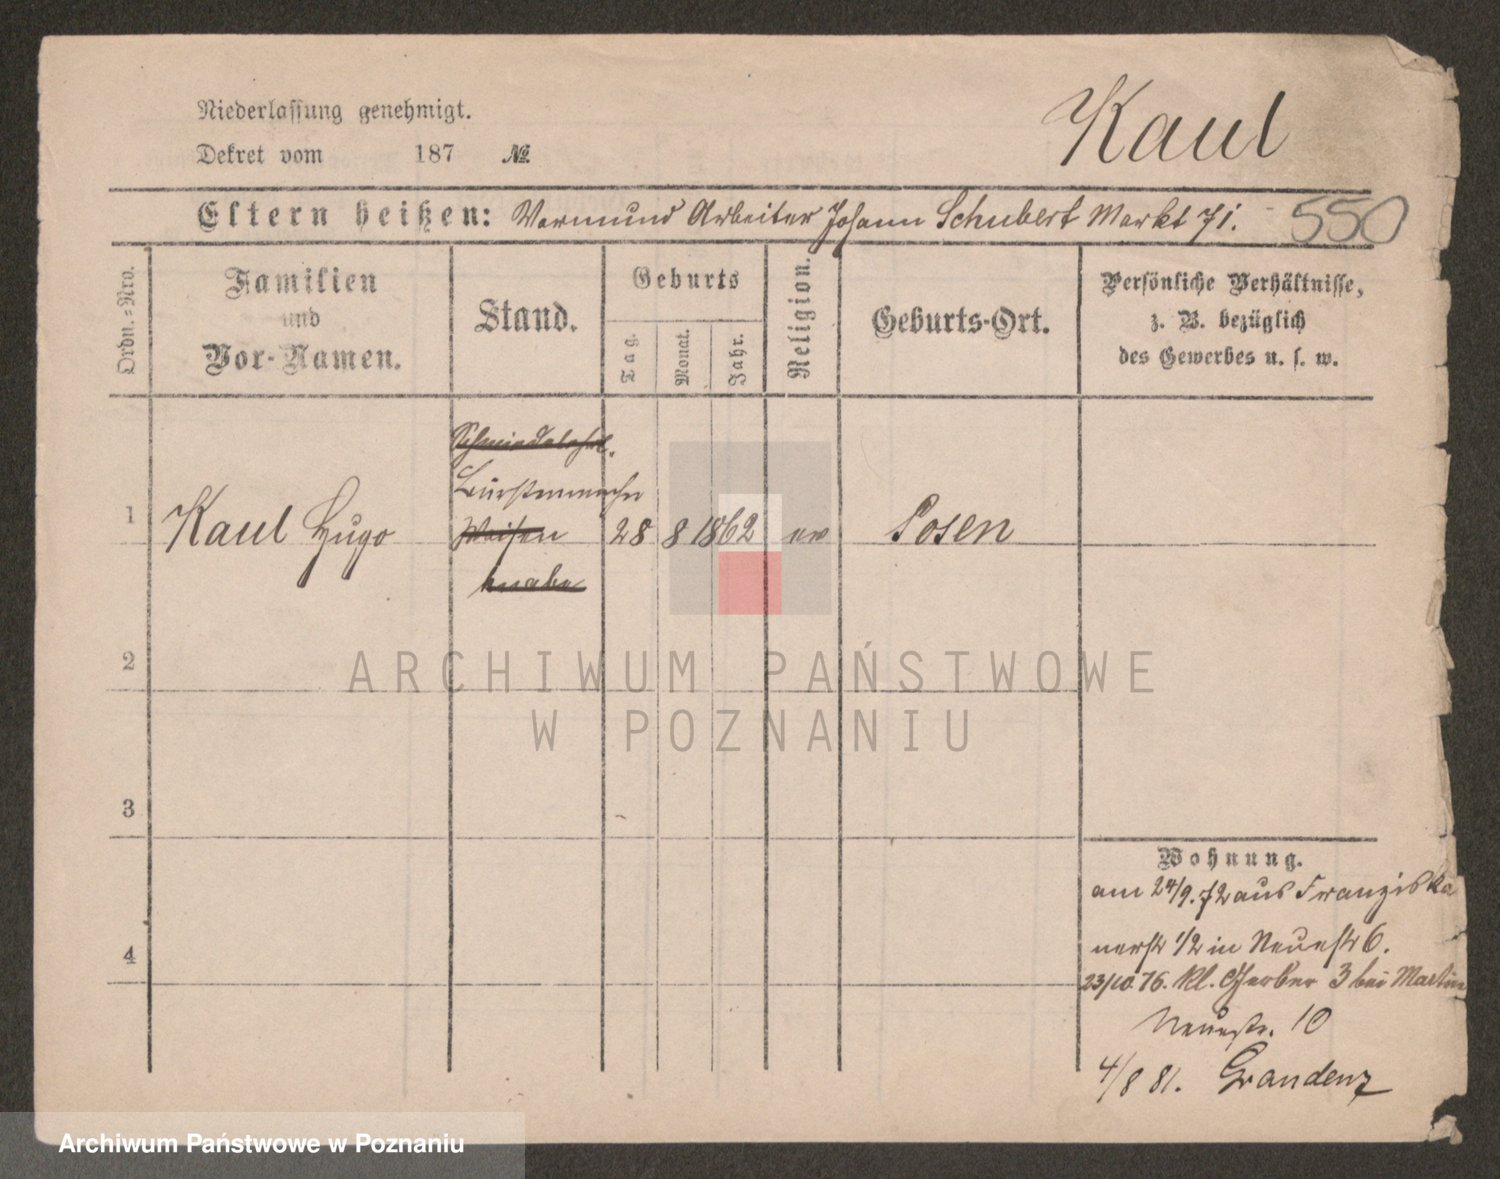 Niederlassung genehmigt.
Dekret vom 187 №
Kaul
Eltern heißen: Vormund Arbeiter Johann Schubert Markt 71.
550
Ordn.=Nro.
Familien
und
Vor-Namen.
Stand.
Geburts
Tag.
Monat.
Jahr.
Religion.
Geburts-Ort.
Persönliche Verhältnisse,
z. B. bezüglich
des Gewerbes u. s. w.
Schmiedelehrl.
Bürstenmacher
1 Kaul Hugo Waisen 28 8 1862 ev Posen
knabe
2
3
4
Wohnung.
am 24/9. 72 aus Franziska
nerstr 1/2 in Neuestr 6.
23/10. 76. kl. Gerber 3 bei Martin
Neuestr. 10
4/8 81. Graudenz
ARCHIWUM PAŃSTWOWE
W POZNANIU
Archiwum Państwowe w Poznaniu